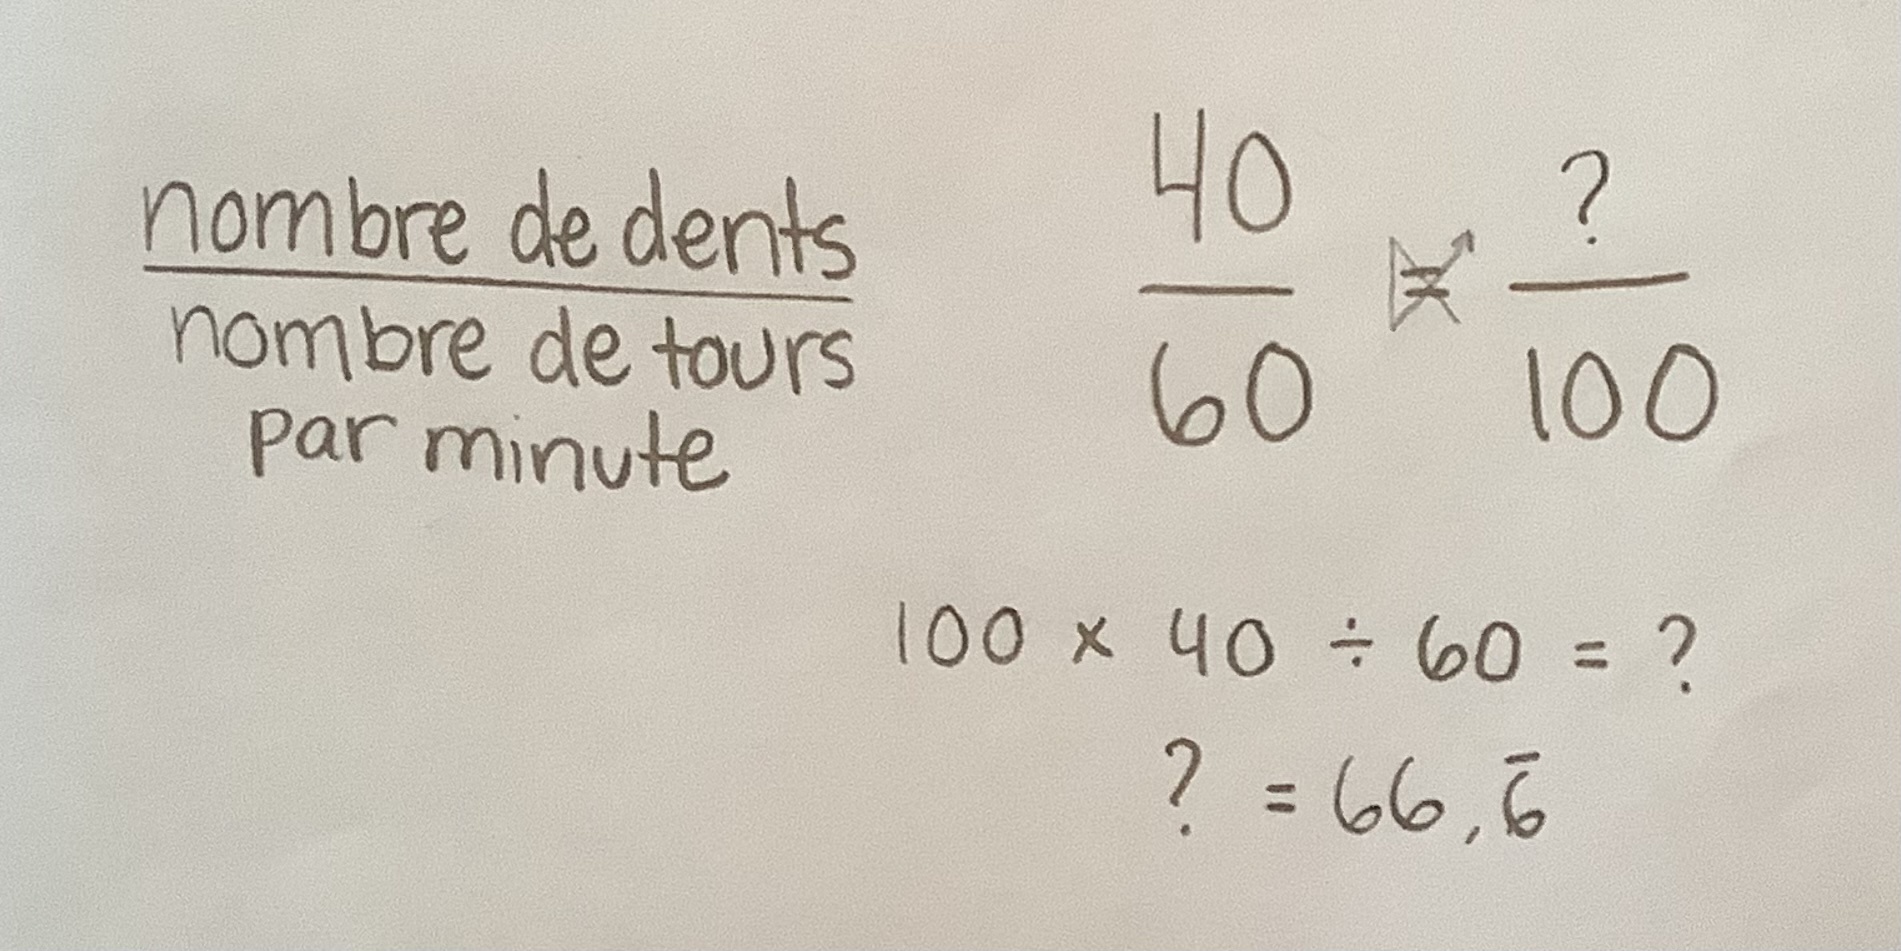 nombre de dents
nombre de tours
par minute
40 = ?
60 100
100 × 40 ÷ 60 = ?
? = 66,6̄